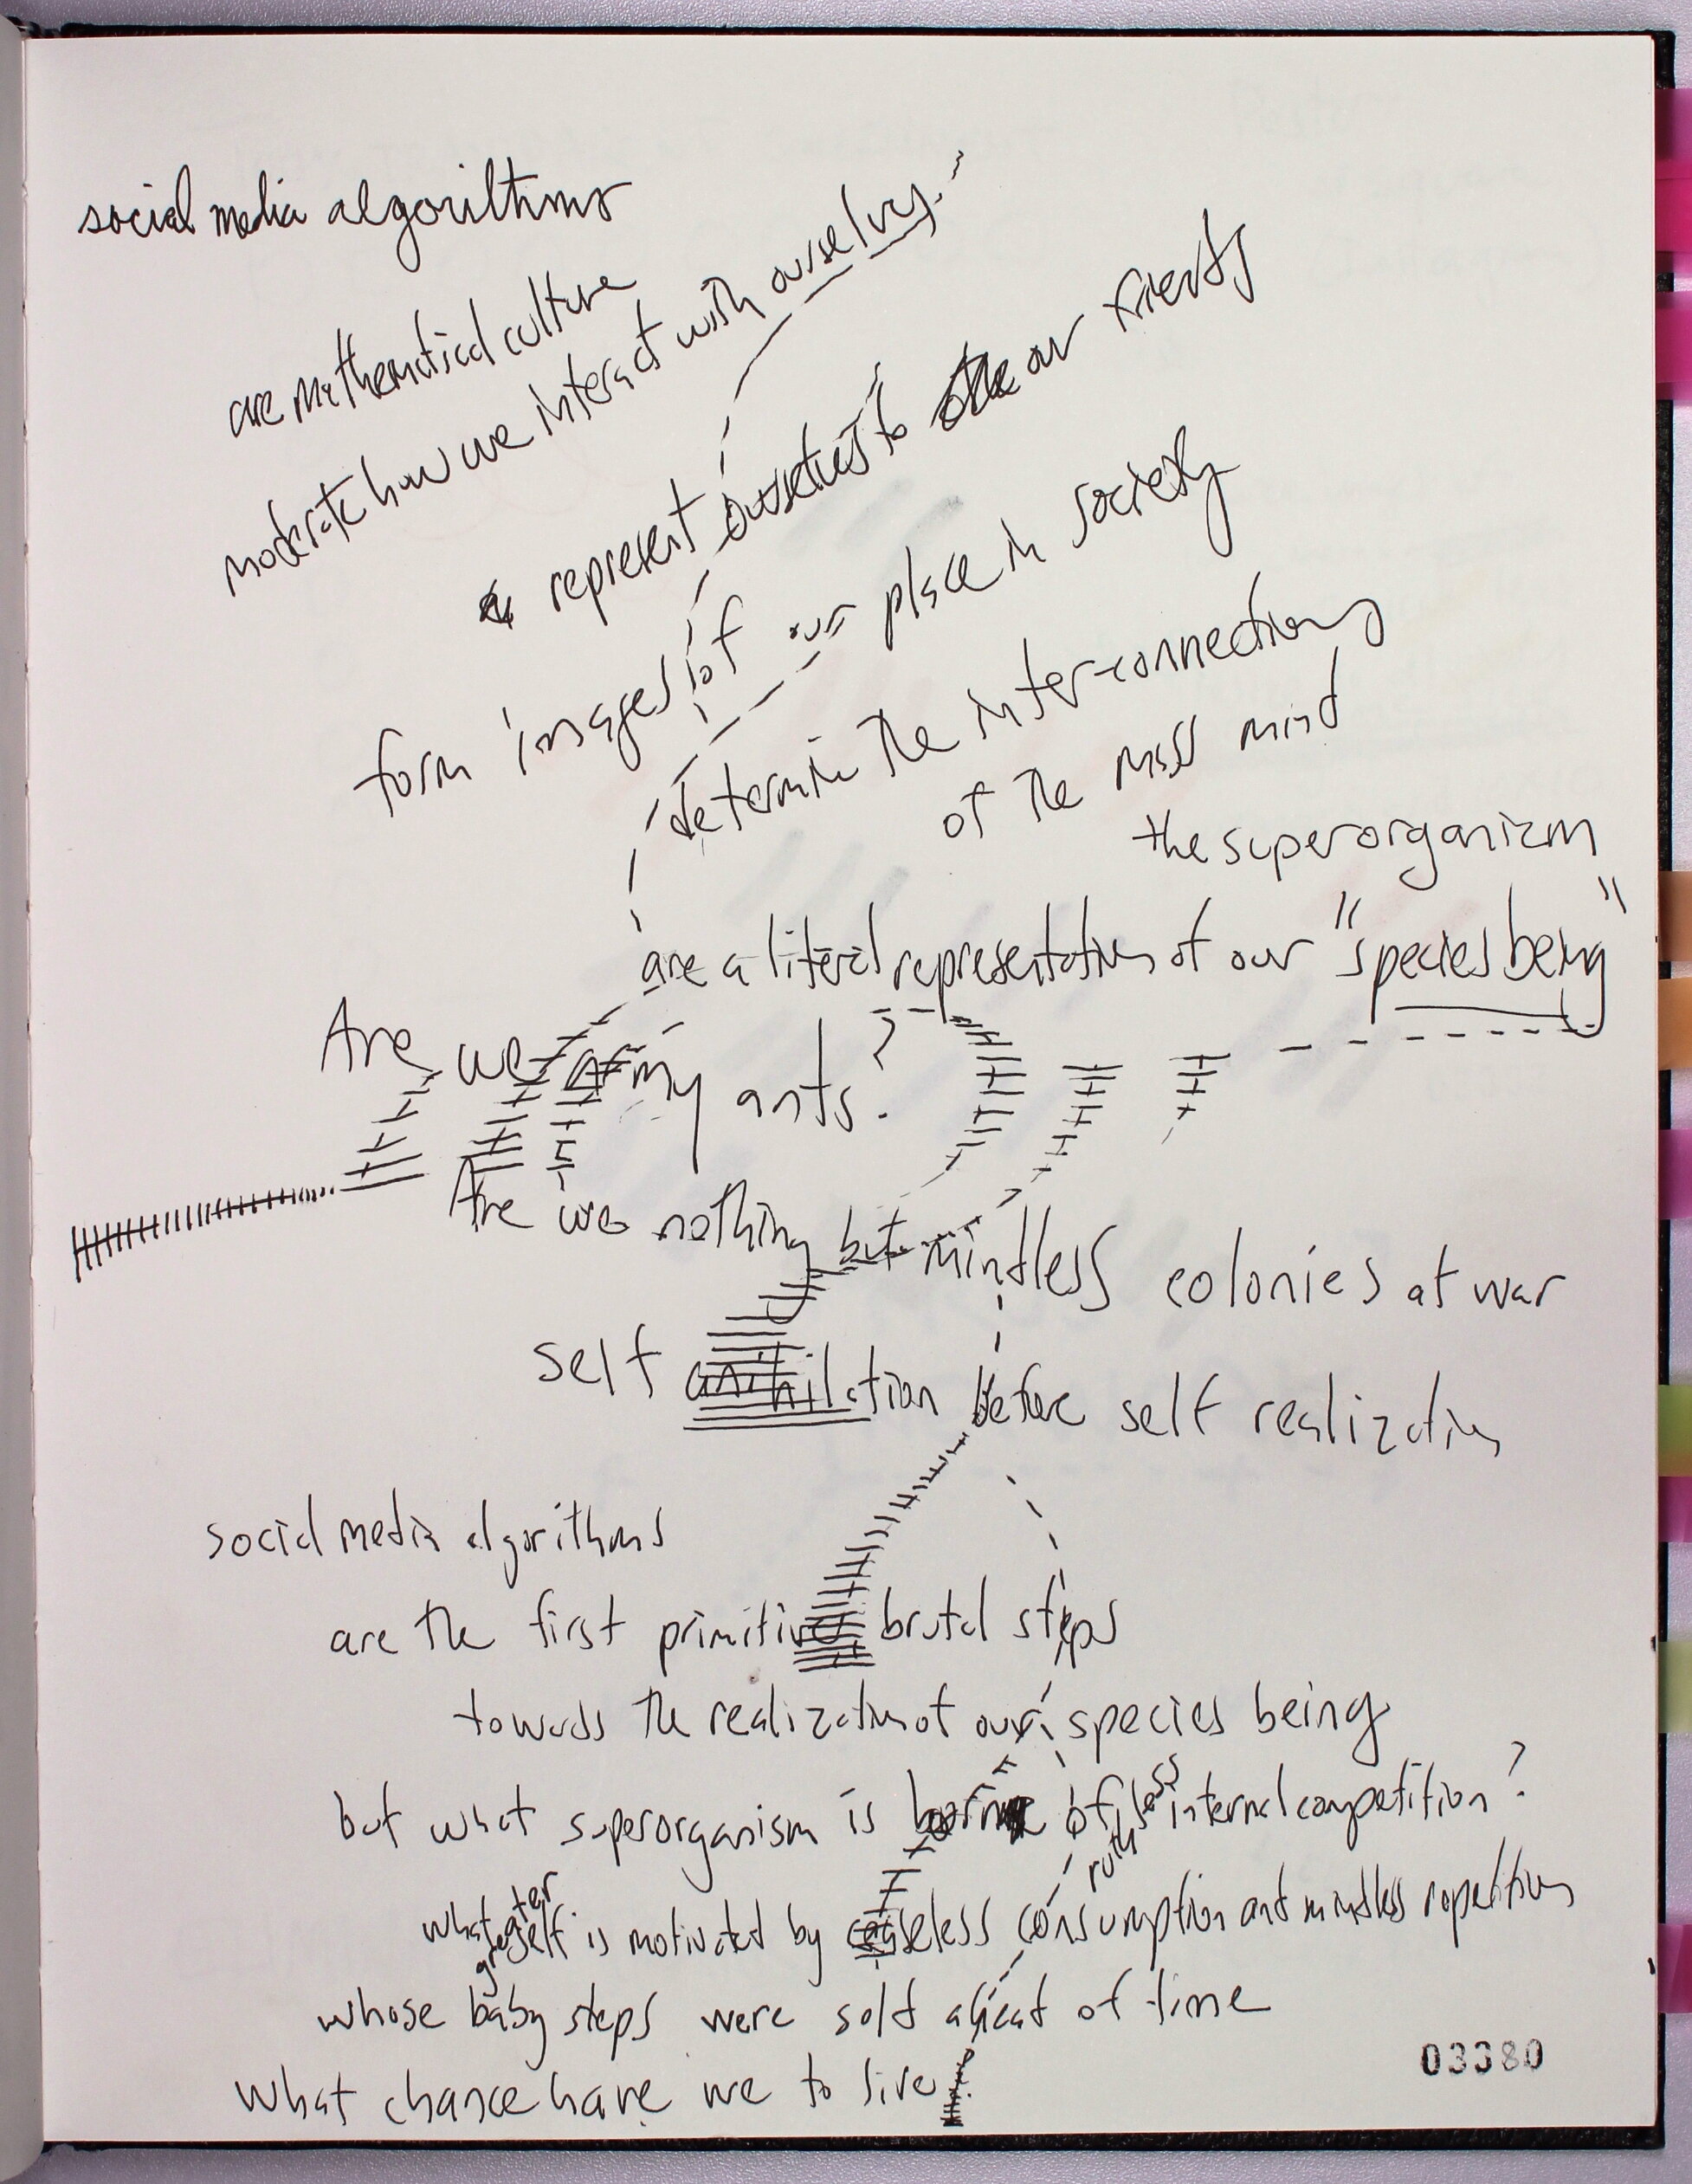 social media algorithms
are mathematical culture
moderate how we interact with ourselves
represent ourselves to our friends
form images of our place in society
determine the inter-connections
of the mass mind
the superorganizm
are a literal representation of our "species being"
Are we army ants?
Are we nothing but mindless colonies at war
self anihilation before self realization
social media algorithms
are the first primitive brutal steps
towards the realization of our species being
but what superorganism is born of ruthless internal competition?
what greater self is motivated by ceaseless consumption and mindless repetition
whose baby steps were sold ahead of time
What chance have we to live?
03380